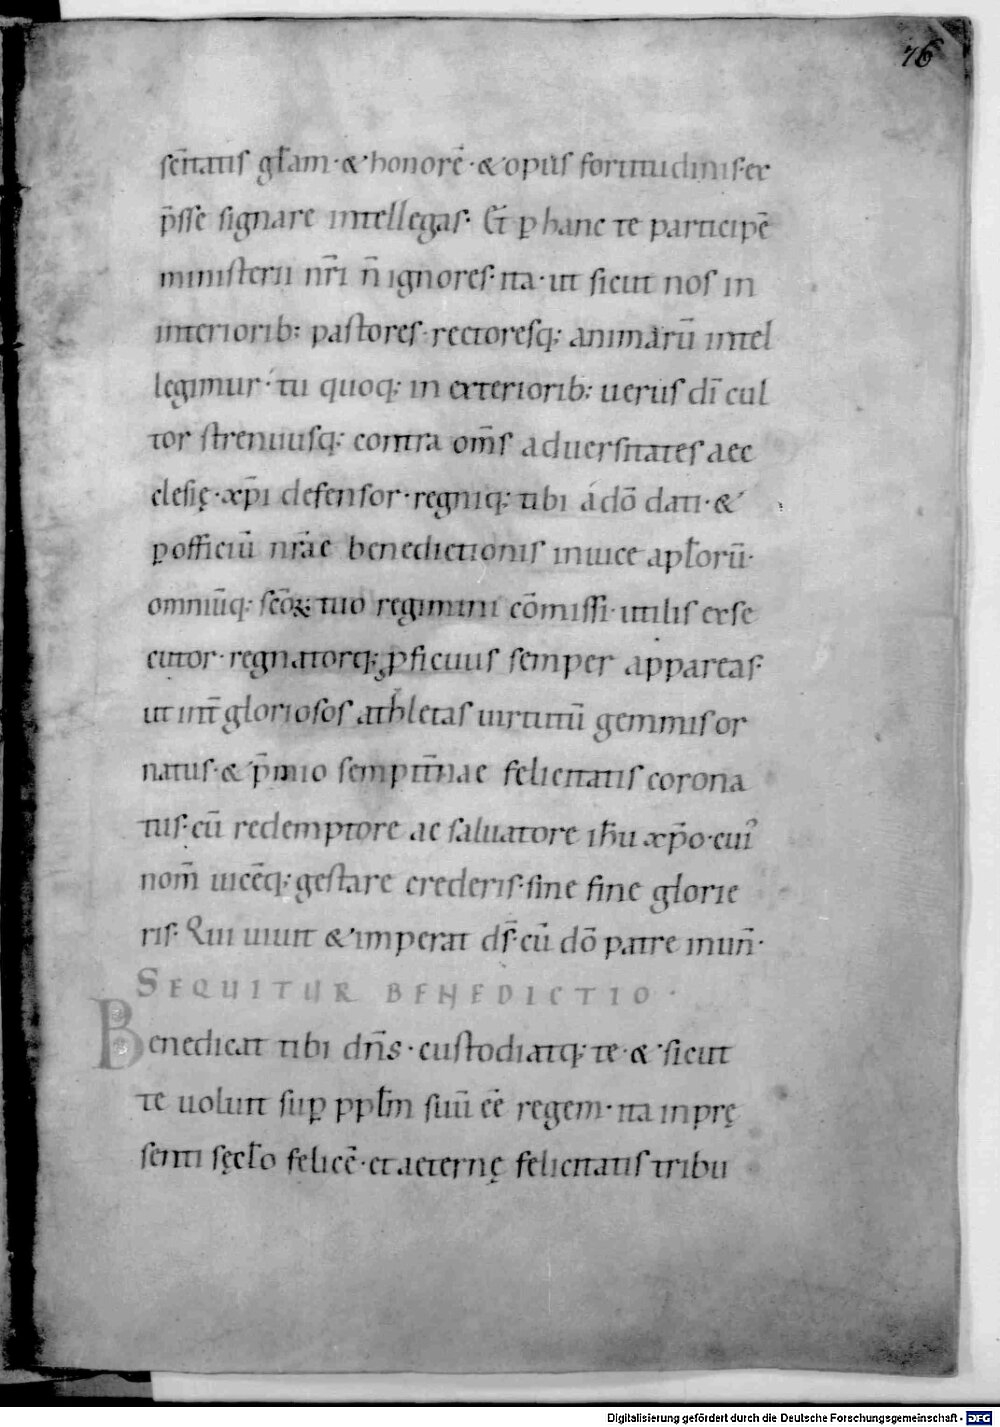 76
sc̄itatis gl̄am · & honorē · & opus fortitudinis · ex
p̄sse signare intellegas · Et̄ ꝑ hanc te participē
ministerii nr̄i n̄ ignores · ita · ut sicut nos in
interiorib; pastores · rectoresq; animarū intel
legimur · tu quoq; in exteriorib; uerus dī cul
tor strenuusq; contra om̄s aduersitates aec
clesię · xp̄i defensor · regniq; tibi á dō dati · &
ꝑ officiū nr̄ae benedictionis inuice apl̄orū ·
omniūq; sc̄oꝝ; tuo regimini cōmissi · utilis exse
cutor · regnatorq; ꝓficuus semper appareas ·
ut int̄ gloriosos athletas uirtutū gemmis or
natus · & p̄mio sempit̄nae felicitatis corona
tus · cū redemptore ac saluatore ih̄u xp̄o · cui᾽
nom̄ uicēq; gestare crederis · sine fine glorie
ris · Qui uiuit & imperat ds̄ · cū dō patre in un̄ ·
SEQUITUR BENEDICTIO ·
Benedicat tibi dn̄s · custodiatq; te · & sicut
te uoluit suꝑ ppl̄m suū eē regem · ita in prę
senti sęcl̄o felicē · et aeternę felicitatis tribu
Digitalisierung gefördert durch die Deutsche Forschungsgemeinschaft - DFG